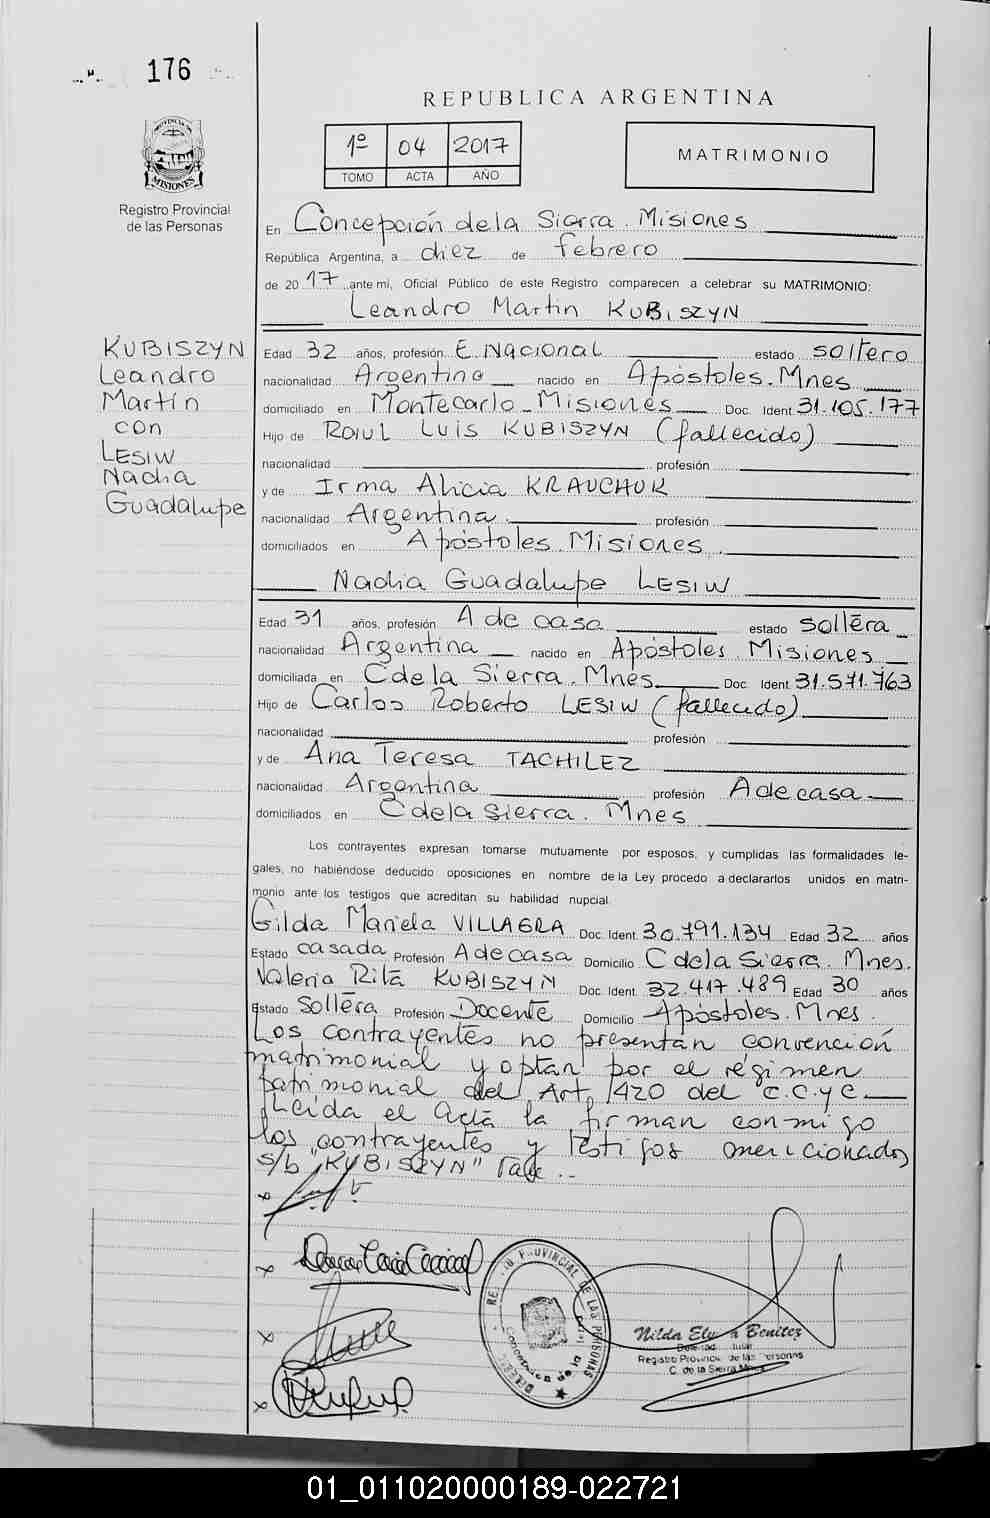 176
REPUBLICA ARGENTINA
1º 04 2017
TOMO ACTA AÑO
MATRIMONIO
PROVINCIA DE
MISIONES
Registro Provincial
de las Personas
En Concepción de la Sierra. Misiones
República Argentina, a diez de febrero
de 2017 ante mi, Oficial Público de este Registro comparecen a celebrar su MATRIMONIO:
Leandro Martin KUBISZYN
KUBISZYN
Leandro
Martín
con
LESIW
Nadia
Guadalupe
Edad 32 años, profesión E. Nacional estado soltero
nacionalidad Argentino nacido en Apóstoles. Mnes
domiciliado en Montecarlo - Misiones Doc. Ident 31.105.177
Hijo de Raul Luis KUBISZYN (fallecido)
nacionalidad profesión
y de Irma Alicia KRAUCHUK
nacionalidad Argentina profesión
domiciliados en Apóstoles. Misiones
Nadia Guadalupe LESIW
Edad 31 años, profesión A de casa estado soltera
nacionalidad Argentina nacido en Apóstoles. Misiones
domiciliada en C de la Sierra. Mnes Doc. Ident 31.571.763
Hijo de Carlos Roberto LESIW (fallecido)
nacionalidad profesión
y de Ana Teresa TACHILEZ
nacionalidad Argentina profesión A de casa
domiciliados en C de la Sierra. Mnes
Los contrayentes expresan tomarse mutuamente por esposos, y cumplidas las formalidades le-
gales, no habiéndose deducido oposiciones en nombre de la Ley procedo a declararlos unidos en matri-
monio ante los testigos que acreditan su habilidad nupcial.
Gilda Mariela VILLAGRA Doc. Ident. 30.791.134 Edad 32 años
Estado casada Profesión A de casa Domicilio C de la Sierra. Mnes.
Valeria Rita KUBISZYN Doc. Ident. 32.417.489 Edad 30 años
Estado Soltera Profesión Docente Domicilio Apóstoles. Mnes.
Los contrayentes no presentan convención
matrimonial y optan por el régimen
patrimonial del Art. 420 del C.C.y C
Leida el Acta la firman conmigo
los contrayentes y testigos mencionados
s/b "KUBISZYN" Vale..
REGISTRO PROVINCIAL DE LAS PERSONAS
Nilda Benitez
Registro Provincial de las Personas
C. de la Sierra
01_011020000189-022721